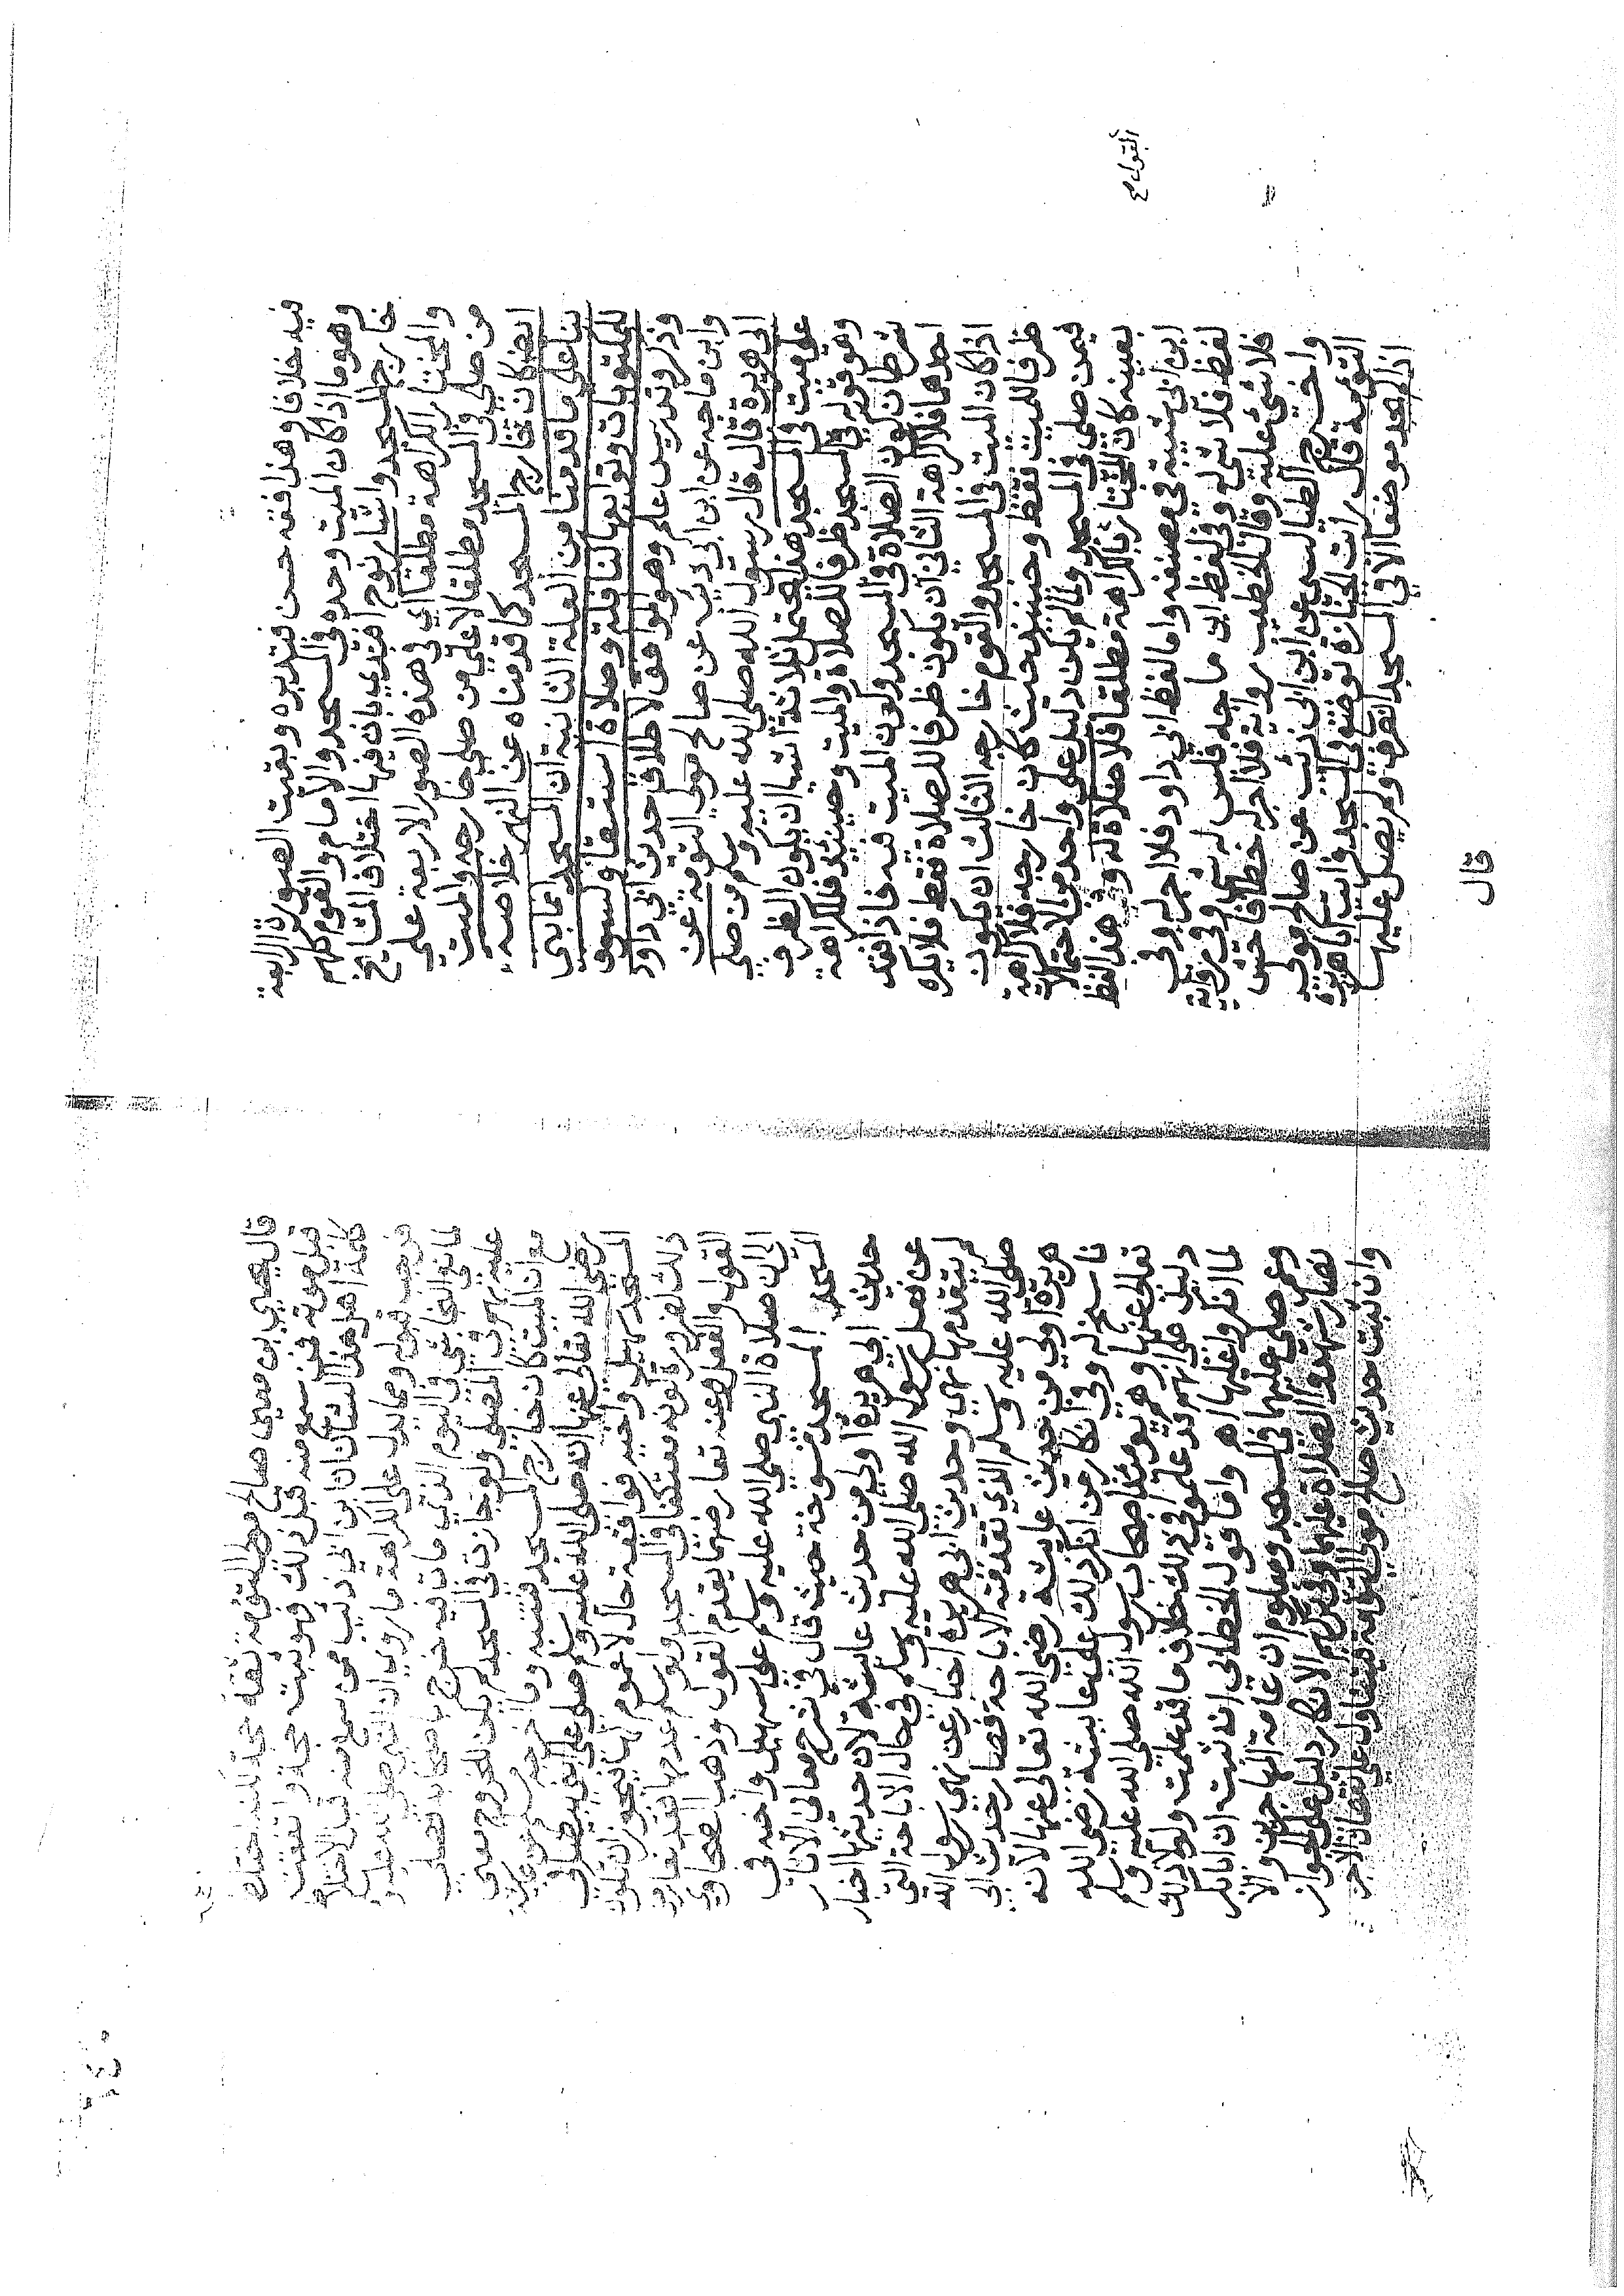 فيه خلافا وهذا فقه حسن فتدبره وبقيت الصورة الرابعة
وهو ما اذا كان الميت وحده في المسجد والامام والقوم كلهم
خارج المسجد واشار نوح افندي بان فيها اختلاف المشايخ
والمختار الكراهة مطلقا اي في هذه الصور الاربعة على
من صلى في المسجد مطلقا لا على من صلى خارجه والميت
ايضا كان خارج المسجد كما قدمناه عن النهر خلاصه
بنا على ما قدمنا من العلة الثانية ان المسجد انما بني
للمكتوبات وتوابعها كنافلة وصلاة استسقا وكسوف
وذكر وتدريس علم وهو الموافق لاطلاق حديث ابي داود
وابن ماجه عن ابن ابي ذئب عن صالح مولى التومة عن
ابي هريرة قال قال رسول الله صلى الله عليه وسلم من صلى
على ميت في المسجد هذا يحتمل ثلاثة اشيا ان يكون الظرف
وهو قوله في المسجد ظرفا للصلاة والميت وحينئذ فللكراهة
شرطان كون الصلاة في المسجد وكون الميت فيه فاذا فقد
احدهما فلا كراهة الثاني ان يكون ظرفا للصلاة فقط فلا يكره
اذا كان الميت في المسجد والقوم خارجه الثالث ان يكون
ظرفا للميت فقط وحينئذ حيث كان خارجه فلا كراهة
فيمن صلى في المسجد ولما لم يكن دليل على واحد من الاحتمالات
بعينه كان المختار الكراهة مطلقا فلا صلاة له وهذا لفظ
ابن ابي شيبة في مصنفه واما لفظ ابي داود فلا اجر له وفي
لفظ فلا شي له وفي لفظ ابن ماجه فليس له شي وفي رواية
فلا شي عليه وقال الخطيب رواية فلا اجر له خطا فاحش
واخرج الطيالسي عن ابن ابي ذئب عن صالح مولى
التومة قال رايت الجنازة توضع في المسجد فرايت ابا هريرة
اذا لم يجد موضعا الا في المسجد انصرف ولم يصل عليها
قال
قال يحيى بن معين صالح مولى التومة ثقة حجة لكنه اختلط
قبل موته فمن سمع منه قبل ذلك فهو ثبت حجة واتفقت
كلمة اهل هذا الشان ان ابن ابي ذئب ممن سمع منه قبل الاختلاط
فوجب قبوله ومما يدل على الكراهة ما روي ان النبي صلى الله عليه
لما نعى النجاشي في اليوم الذي مات فيه خرج باصحابه فصلى
عليه بهم في المصلى ولو جازت في المسجد لم يكن للخروج معنى
مع ان الميت كان خارج المسجد وما اخرجه مسلم عن عايشة
رضي الله تعالى عنها انه صلى الله عليه وسلم صلى على ابني بيضا في
المسجد سهيل واخيه فواقعة حال لا عموم لها فيجوز ان يكون
ذلك لضرورة كونه معتكفا في المسجد ولو سلم عدمها فقد تعارض
القول والفعل وعند تعارضهما يقدم القول وذهب الطحاوي
الى ان صلاة النبي صلى الله عليه وسلم على سهيل واخيه في
المسجد منسوخة حيث قال في شرح معاني الاثار
حديث ابي هريرة اولى من حديث عايشة لان حديثها اخبار
عن فعل رسول الله صلى الله عليه وسلم في حال الاباحة التي
لم يتقدمها نهي وحديث ابي هريرة اخبار عن نهي رسول الله
صلى الله عليه وسلم الذي تقدمته الاباحة فصار حديث ابي
هريرة اولى من حديث عايشة رضي الله تعالى عنها لانه
ناسخ له وفي انكار من انكر ذلك على عايشة رضي الله
تعالى عنها وهم يومئذ اصحاب رسول الله صلى الله عليه وسلم
دليل على انهم قد علموا في ذلك خلاف ما قد علمت ولولا ذلك
لما انكروا عليها اهـ واما قول الخطابي انه ثبت ان ابا بكر
وعمر صلي عليهما في المسجد ومعلوم ان عامة المهاجرين والا
نصار شهدوا الصلاة عليهما وفي تركهم الانكار دليل على الجواز
وان ثبت حديث صالح مولى التومة فيتاول على نقصان الاجر